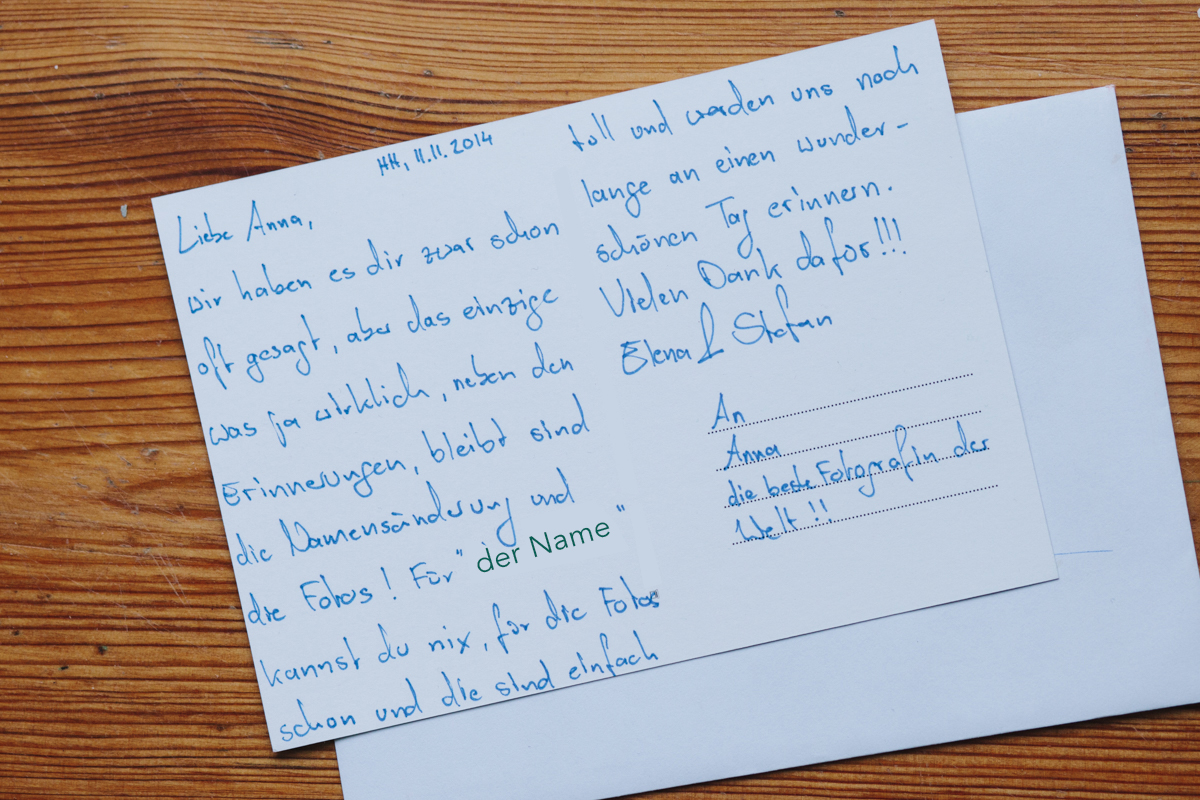 HH, 11.11.2014
Liebe Anna,
wir haben es dir zwar schon
oft gesagt, aber das einzige
was ja wirklich, neben den
Erinnerungen, bleibt sind
die Namensänderung und
die Fotos! Für "der Name"
kannst du nix, für die Fotos
schon und die sind einfach
toll und werden uns noch
lange an einen wunder-
schönen Tag erinnern.
Vielen Dank dafür!!!
Elena & Stefan
An
Anna
die beste Fotografin der
Welt!!